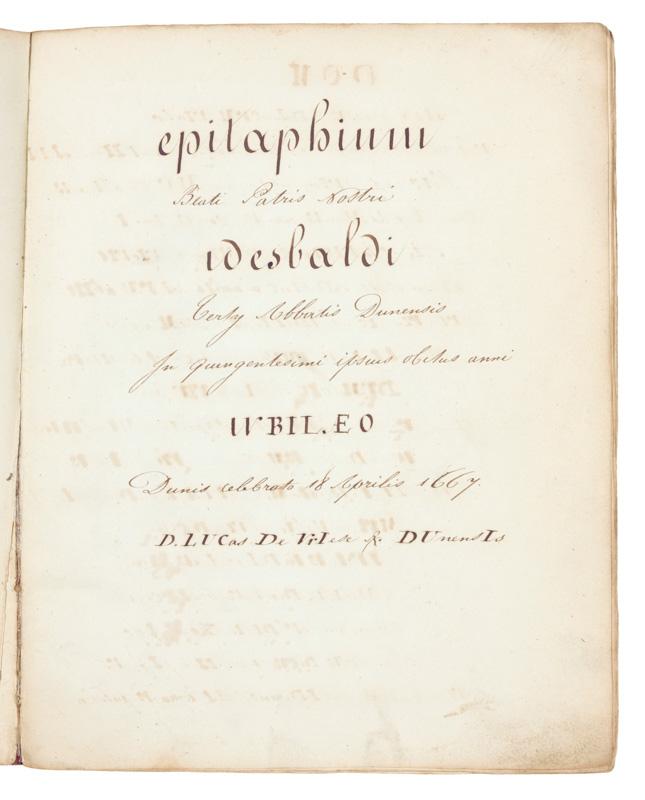 epitaphium
Beati Patris Nostri
idesbaldi
Tertÿ Abbatis Dunensis
In quingentesimi ipsius obitus anni
IVBIL.EO
Dunis celebrato 18 Aprilis 1667.
D. LUCas De VrIese DUnensIs